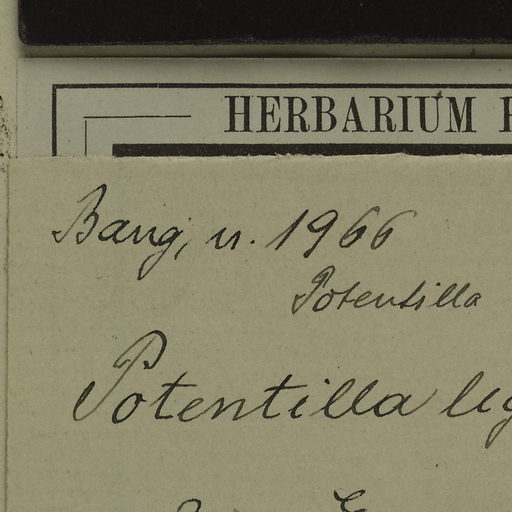 HERBARIUM
Bang, n. 1966
Potentilla
Potentilla